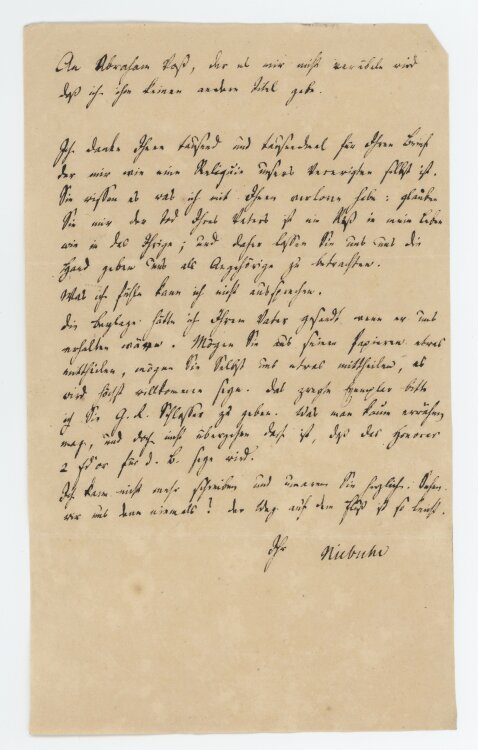 An Abraham Voß, der es mir nicht verübeln wird
daß ich ihm keinen andern Titel gebe.
Ich danke Ihnen tausend und tausendmal für Ihren Brief
der mir wie eine Reliquie unsers Verewigten selbst ist.
Sie wissen es was ich mit Ihnen verloren habe: glauben
Sie mir der Tod Ihres Vaters ist ein Riß in mein Leben
wie in das Ihrige; und daher lassen Sie uns uns die
Hand geben uns als Angehörige zu betrachten.
Was ich fühle kann ich nicht aussprechen.
Die Beylage hätte ich Ihrem Vater gesandt wenn er uns
erhalten wäre. Mögen Sie aus seinen Papieren etwas
mittheilen, mögen Sie Selbst uns etwas mittheilen, es
wird höchst willkommen seyn. Das zweyte Exemplar bitte
ich Sie G. K. Schlosser zu geben. Was man kaum erwähnen
mag, und doch nicht übergehen darf ist, daß das Honorar
2 Fd'or für d. B. seyn wird.
Ich kann nicht mehr schreiben und umarme Sie herzlich. Sehen
wir uns denn niemals? der Weg auf dem Fluß ist so leicht.
Ihr Niebuhr